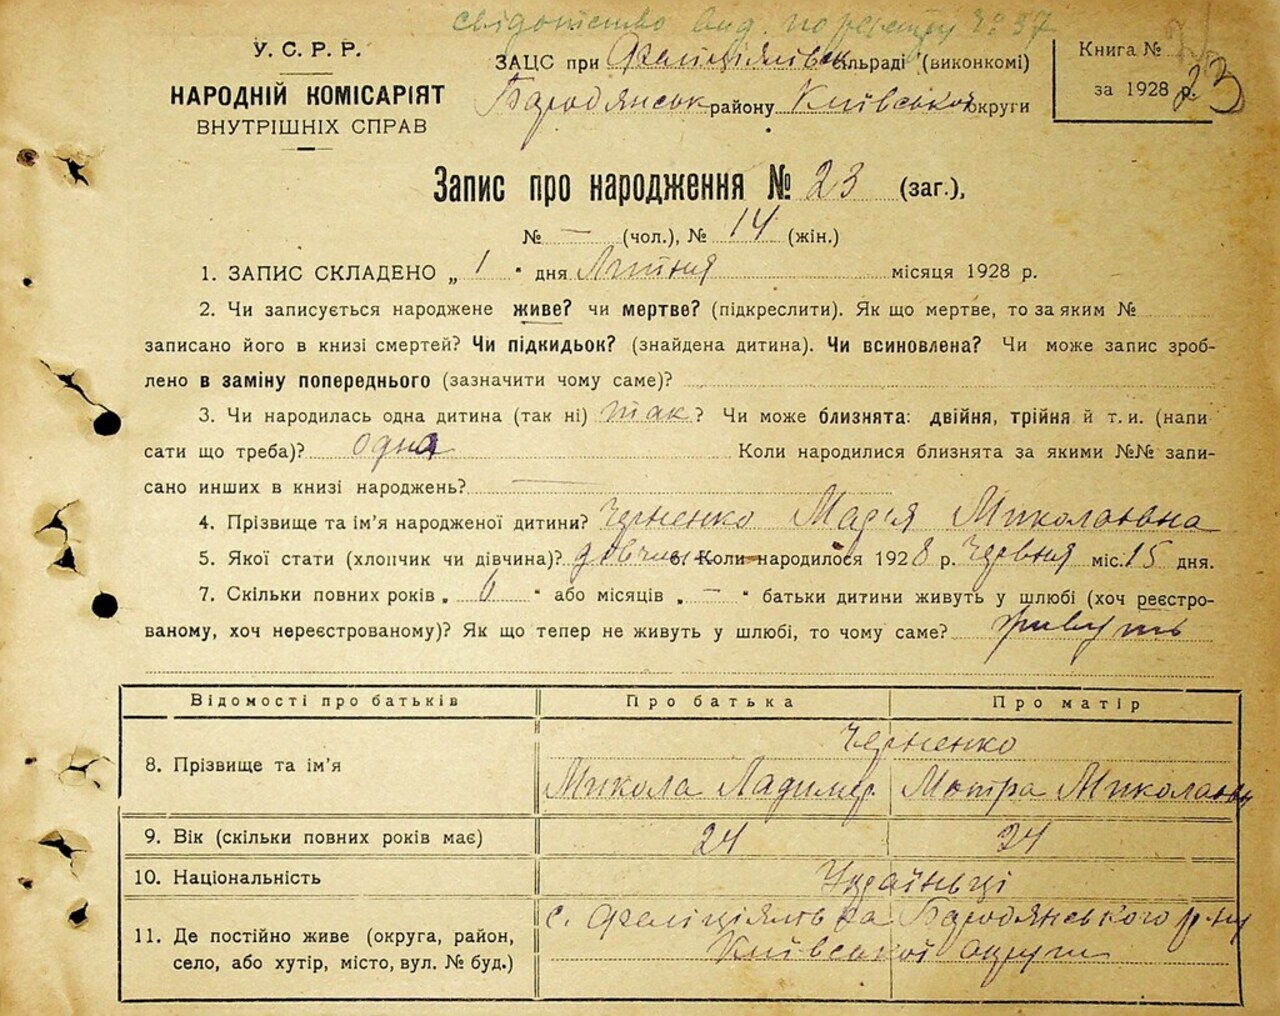 свідотство вид. по реєстру № 37
У. С. Р. Р.
НАРОДНІЙ КОМІСАРІЯТ
ВНУТРІШНІХ СПРАВ
ЗАЦС при Феліціянівськ сільраді (виконкомі)
Бародянськ району Київської округи
Книга №
за 1928 р.
23
Запис про народження № 23 (заг.),
№ — (чол.), № 14 (жін.)
1. ЗАПИС СКЛАДЕНО „ 1 " дня Липня місяця 1928 р.
2. Чи записується народжене живе? чи мертве? (підкреслити). Як що мертве, то за яким №
записано його в книзі смертей? Чи підкидьок? (знайдена дитина). Чи всиновлена? Чи може запис зроб-
лено в заміну попереднього (зазначити чому саме)?
3. Чи народилась одна дитина (так ні) так ? Чи може близнята: двійня, трійня й т. и. (напи-
сати що треба)? одна Коли народилися близнята за якими №№ запи-
сано инших в книзі народжень? —
4. Прізвище та ім'я народженої дитини? Черненко Марія Миколаівна
5. Якої стати (хлопчик чи дівчина)? дівчина 6. Коли народилося 1928 р. Червня міс. 15 дня.
7. Скільки повних років „ 6 " або місяців „ — " батьки дитини живуть у шлюбі (хоч реєстро-
ваному, хоч нереєстрованому)? Як що тепер не живуть у шлюбі, то чому саме? живуть
Відомості про батьків Про батька Про матір
Черненко
8. Прізвище та ім'я Микола Ладимир Мотра Миколаівн
9. Вік (скільки повних років має) 24 24
10. Національність Україньці
11. Де постійно живе (округа, район, с. Феліціянівка Бародянського р-ну
село, або хутір, місто, вул. № буд.) Київської округи